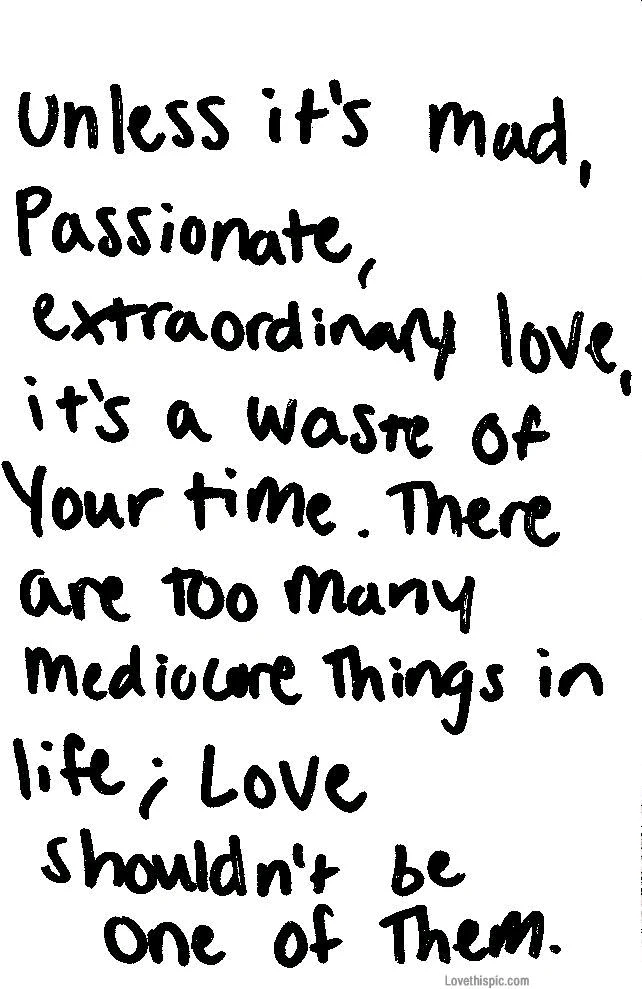 unless it's mad,
Passionate,
extraordinary love,
it's a waste of
Your time. There
are Too many
mediocore Things in
life; Love
shouldn't be
one of Them.
Lovethispic.com